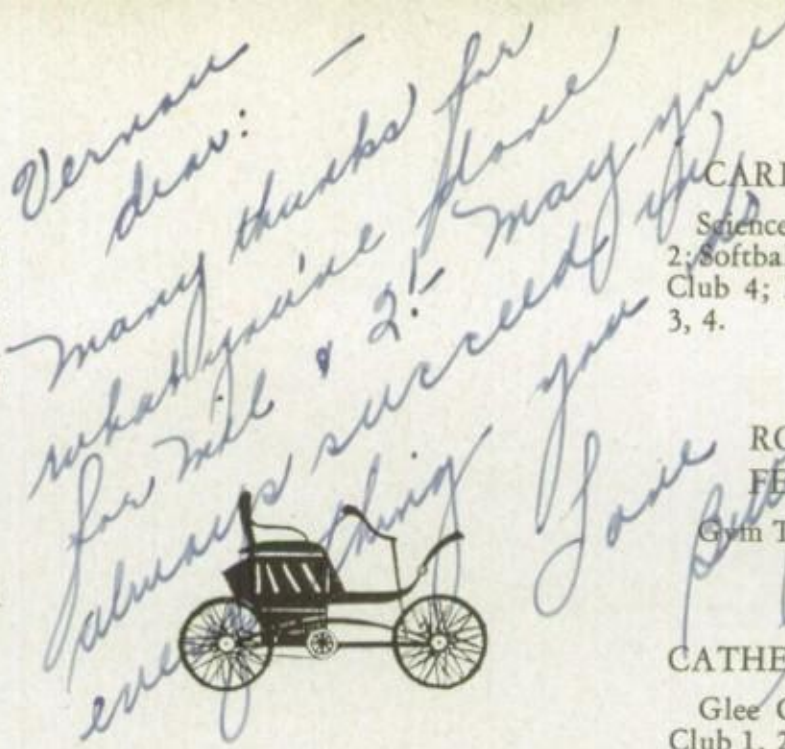 Vernon
dear: —
Many thanks for
what you've done
for Mil & 2! - May you
always succeed in
everything you do
Love
CARL
Science
2; Softba
Club 4;
3, 4.
RO
FE
Gym T
CATHE
Glee C
Club 1, 2